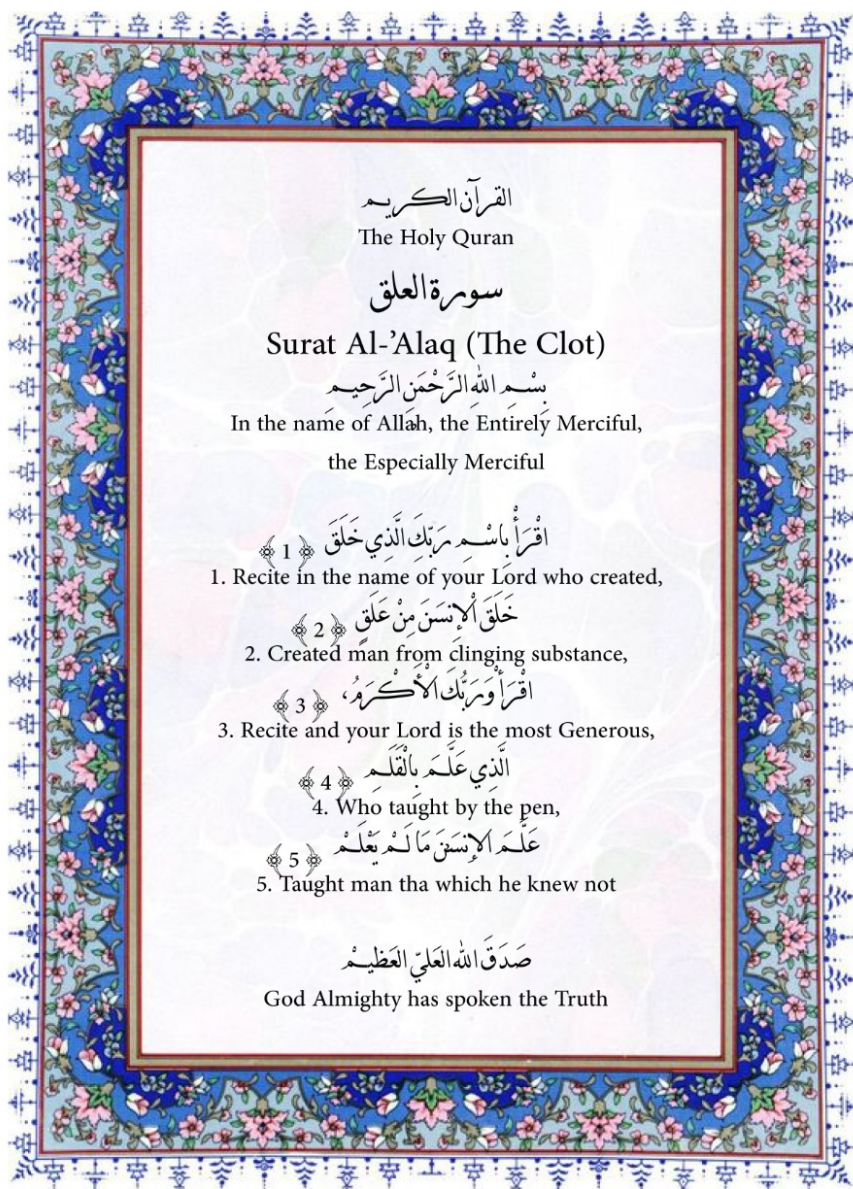 القرآن الكريم
The Holy Quran
سورة العلق
Surat Al-’Alaq (The Clot)
بِسْمِ اللهِ الرَّحْمَنِ الرَّحِيمِ
In the name of Allah, the Entirely Merciful,
the Especially Merciful
اقْرَأْ بِاسْمِ رَبِّكَ الَّذِي خَلَقَ ﴿1﴾
1. Recite in the name of your Lord who created,
خَلَقَ الْإِنسَنَ مِنْ عَلَقٍ ﴿2﴾
2. Created man from clinging substance,
اقْرَأْ وَرَبُّكَ الْأَكْرَمُ، ﴿3﴾
3. Recite and your Lord is the most Generous,
الَّذِي عَلَّمَ بِالْقَلَمِ ﴿4﴾
4. Who taught by the pen,
عَلَّمَ الإِنسَنَ مَا لَمْ يَعْلَمْ ﴿5﴾
5. Taught man tha which he knew not
صَدَقَ الله العَليّ العَظيمْ
God Almighty has spoken the Truth